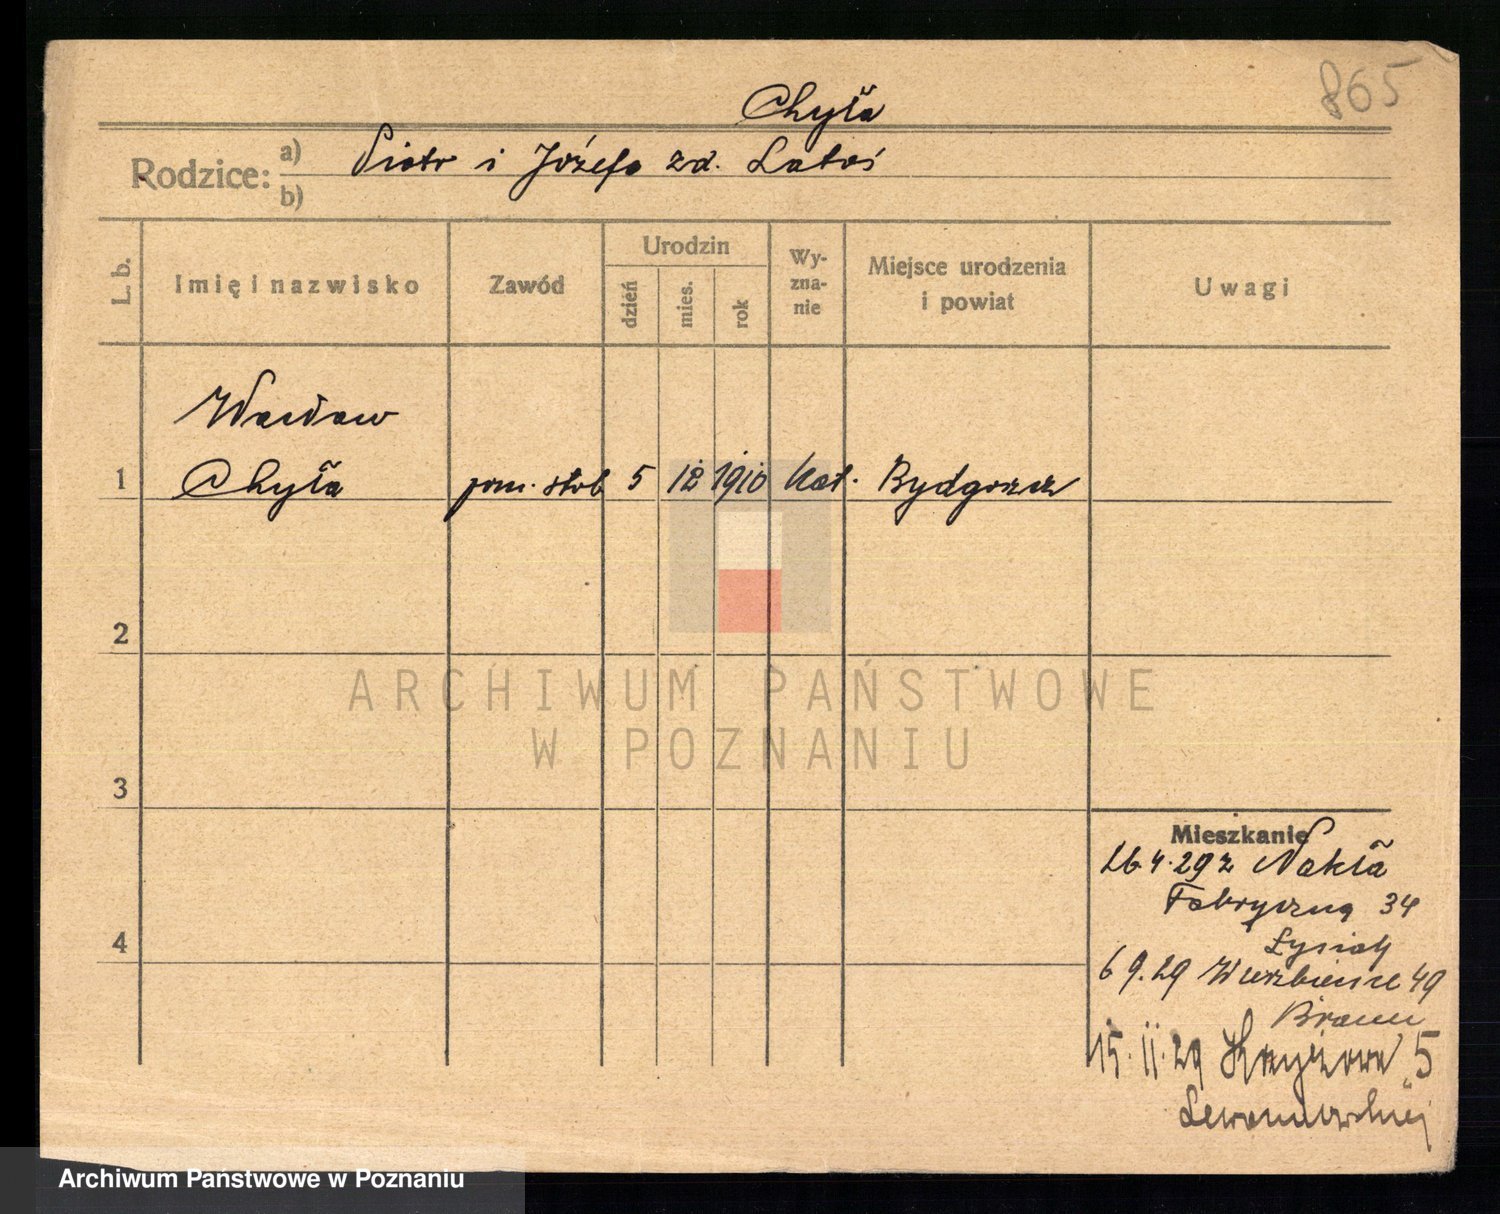 865
Chyła
Rodzice: a) Piotr i Józefa zd. Latoś
b)
L. b. Imię i nazwisko Zawód Urodzin dzień mies. rok Wyznanie Miejsce urodzenia i powiat Uwagi
Wacław
1 Chyła pom. stol 5 12 1910 kat. Bydgoszcz
2
3
4
Mieszkanie
26.4.29 z Nakła
Fabryczna 34
6 9.29 Wierzbięcice 49
Braun
15.11.29 Krzyżowa 5
Lewandowskiej
ARCHIWUM PAŃSTWOWE
W POZNANIU
Archiwum Państwowe w Poznaniu